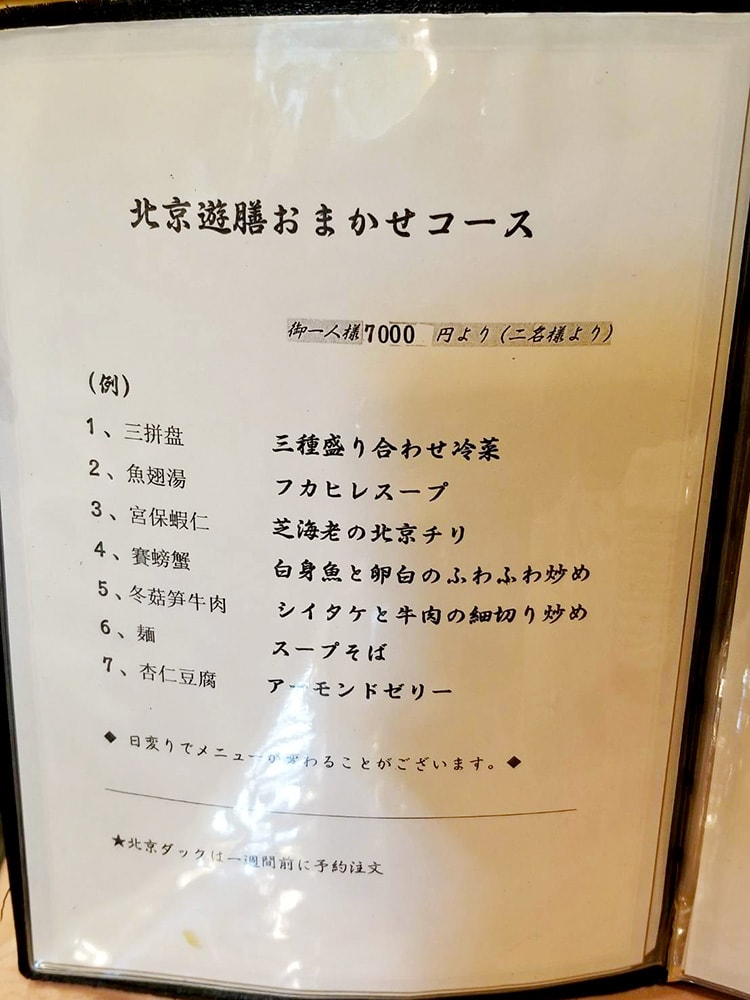 北京遊膳おまかせコース
御一人様7000 円より(二名様より)
(例)
1、三拼盘 三種盛り合わせ冷菜
2、魚翅湯 フカヒレスープ
3、宮保蝦仁 芝海老の北京チリ
4、賽螃蟹 白身魚と卵白のふわふわ炒め
5、冬菇笋牛肉 シイタケと牛肉の細切り炒め
6、麺 スープそば
7、杏仁豆腐 アーモンドゼリー
◆ 日変りでメニューが変わることがございます。◆
★北京ダックは一週間前に予約注文